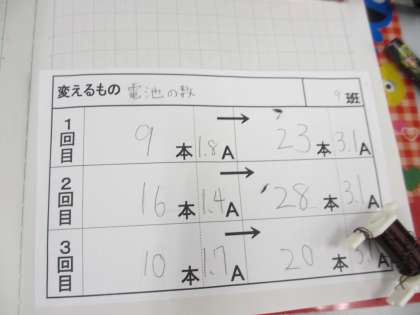 変えるもの 電池の数 9班
1回目 9本 1.8A → 23本 3.1A
2回目 16本 1.4A → 28本 3.1A
3回目 10本 1.7A → 20本